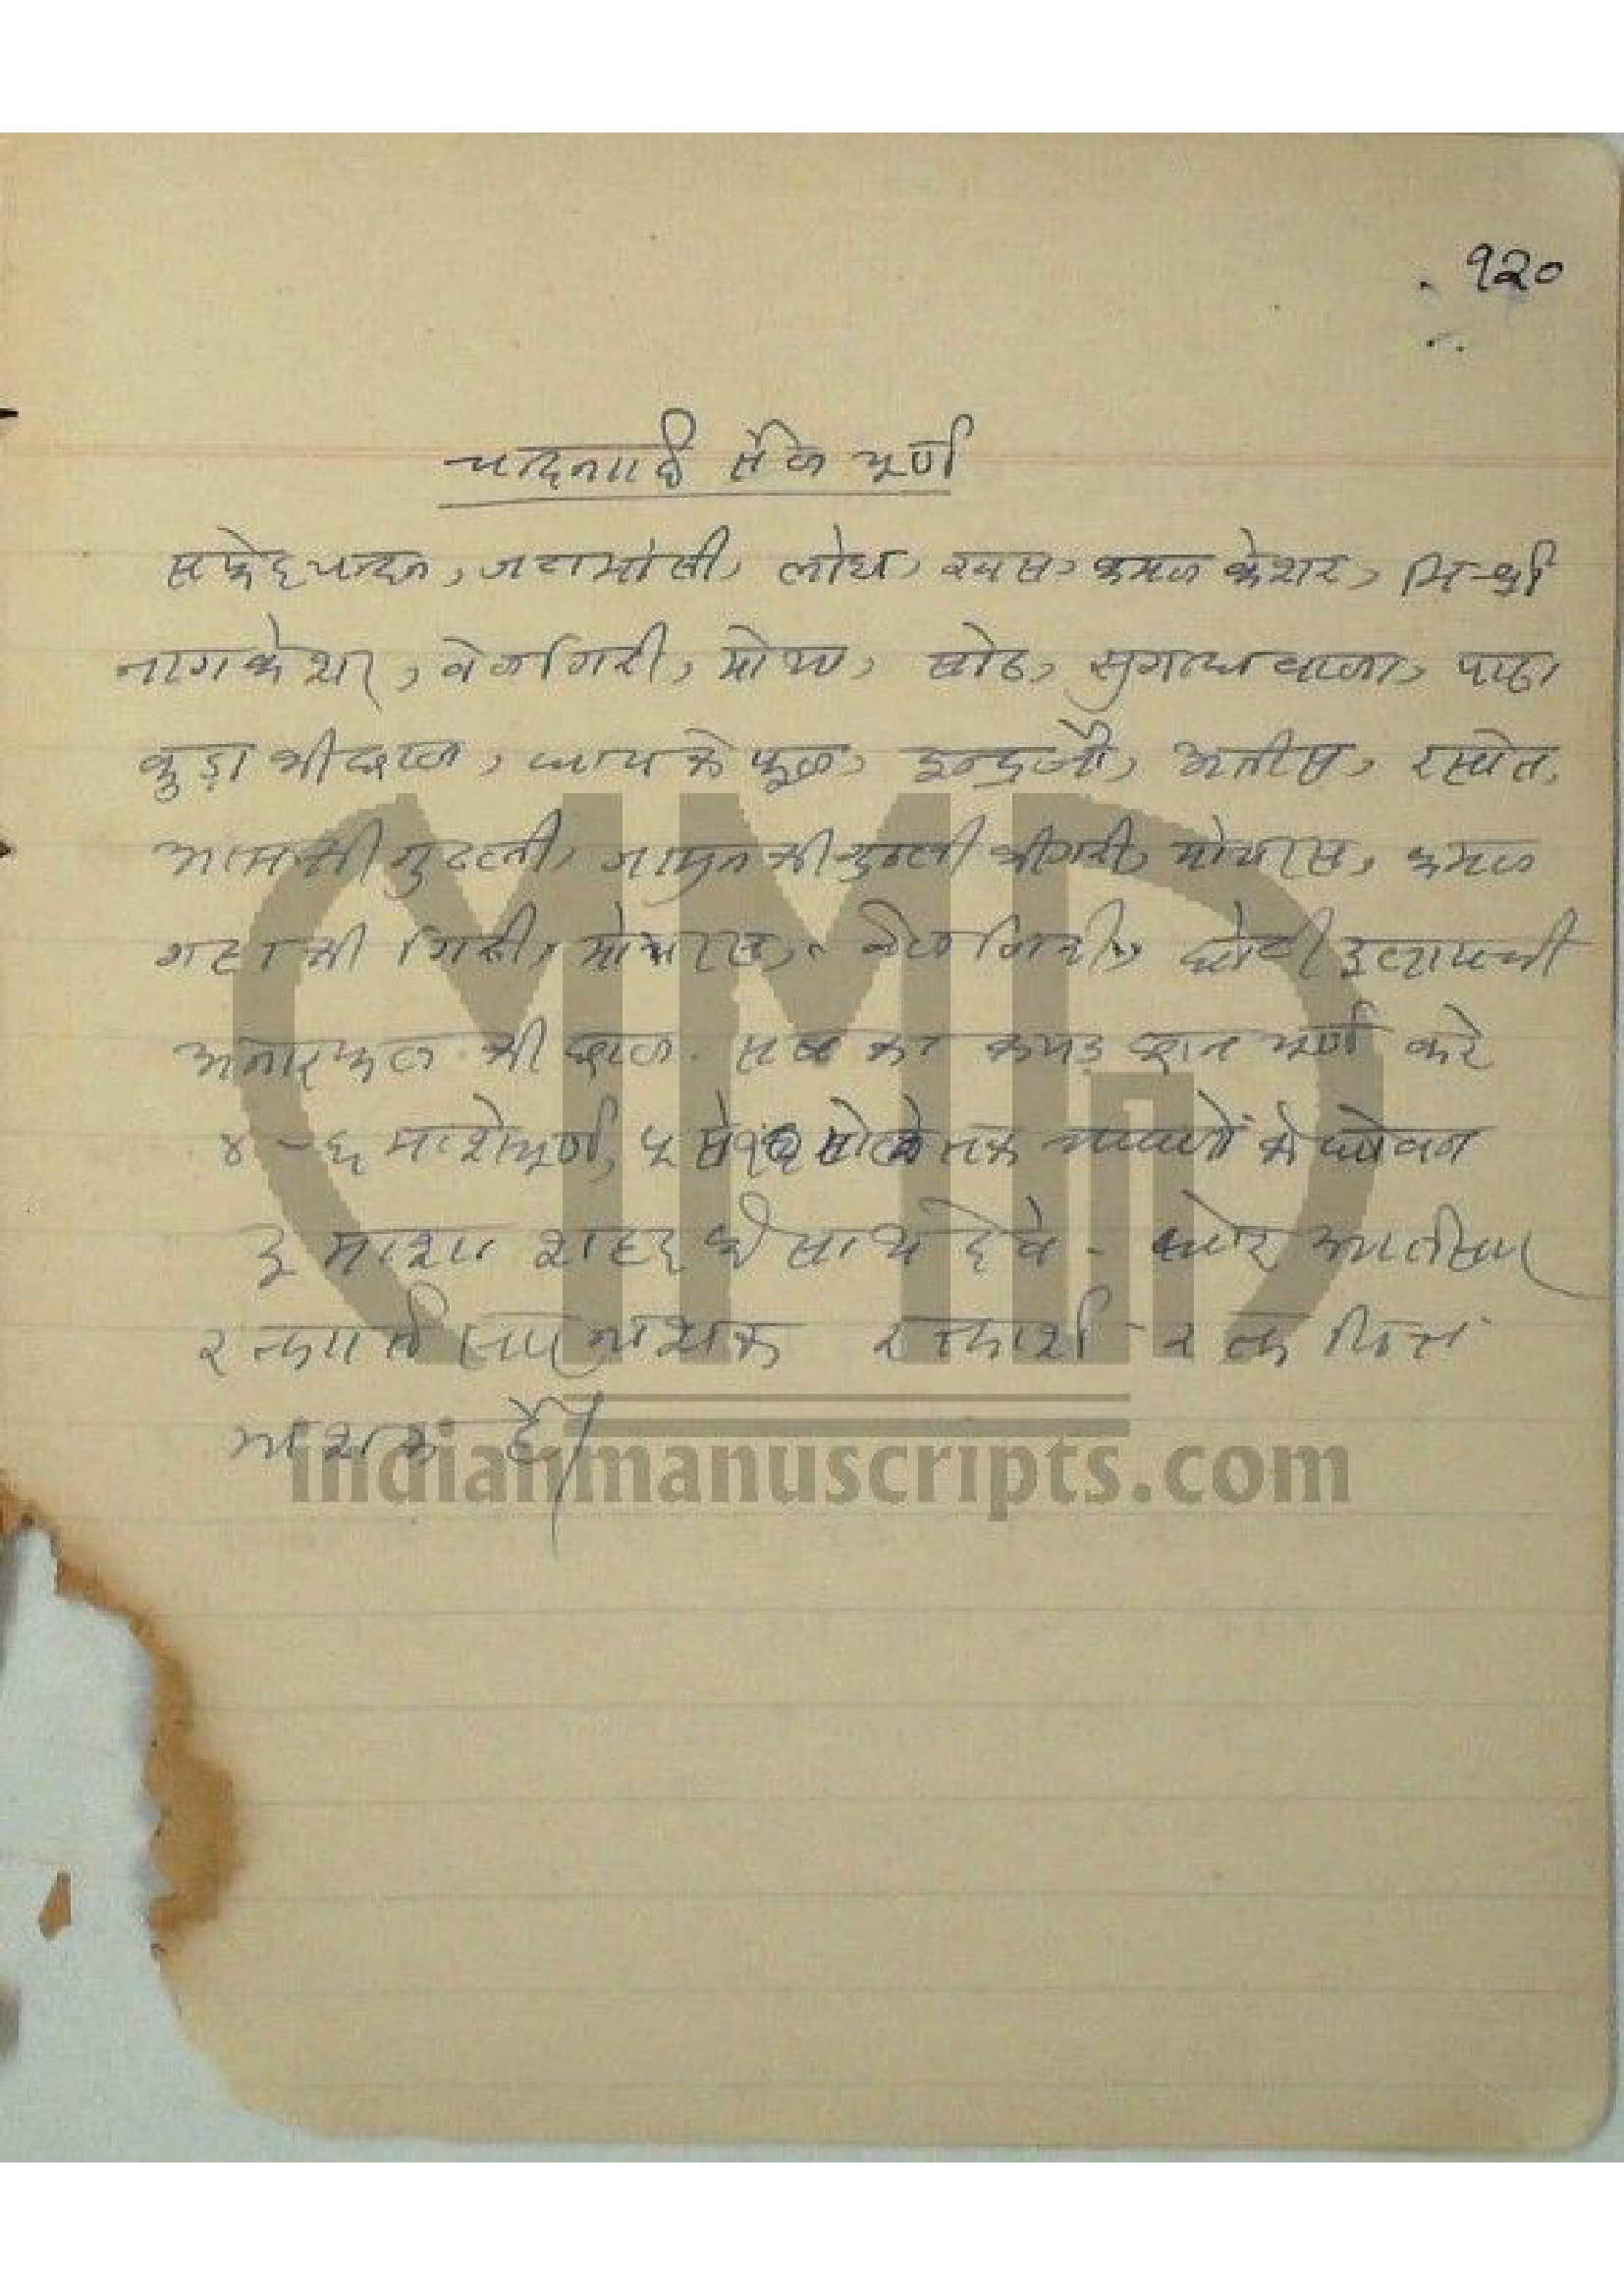 १२०
चन्दनादि चूर्ण
सफेद चन्दन, जटामांसी, लोध, खस, कमल केशर, मिश्री
नागकेशर, बेलगिरी, मोथा, सोंठ, सुगन्धवाला, पाढा
कुड़ा की छाल, धाय के फूल, इन्द्रजौ, अतीस, रसोत,
आम की गुठली, जामुन की गुठली की गिरी, मोचरस, कमल
गटा की गिरी, मोचरस, बेलगिरी, छोटी इलायची
अनार फल की छाल. सब का कपड़ छान चूर्ण करे
४-६ माशे चूर्ण, ५ से तक चावलों के धोवन
३ माशा शहद के साथ देवे - और अतिसार
रक्तातिसार नाशक रक्तार्श रक्त पित्त
नाशक है।
indianmanuscripts.com